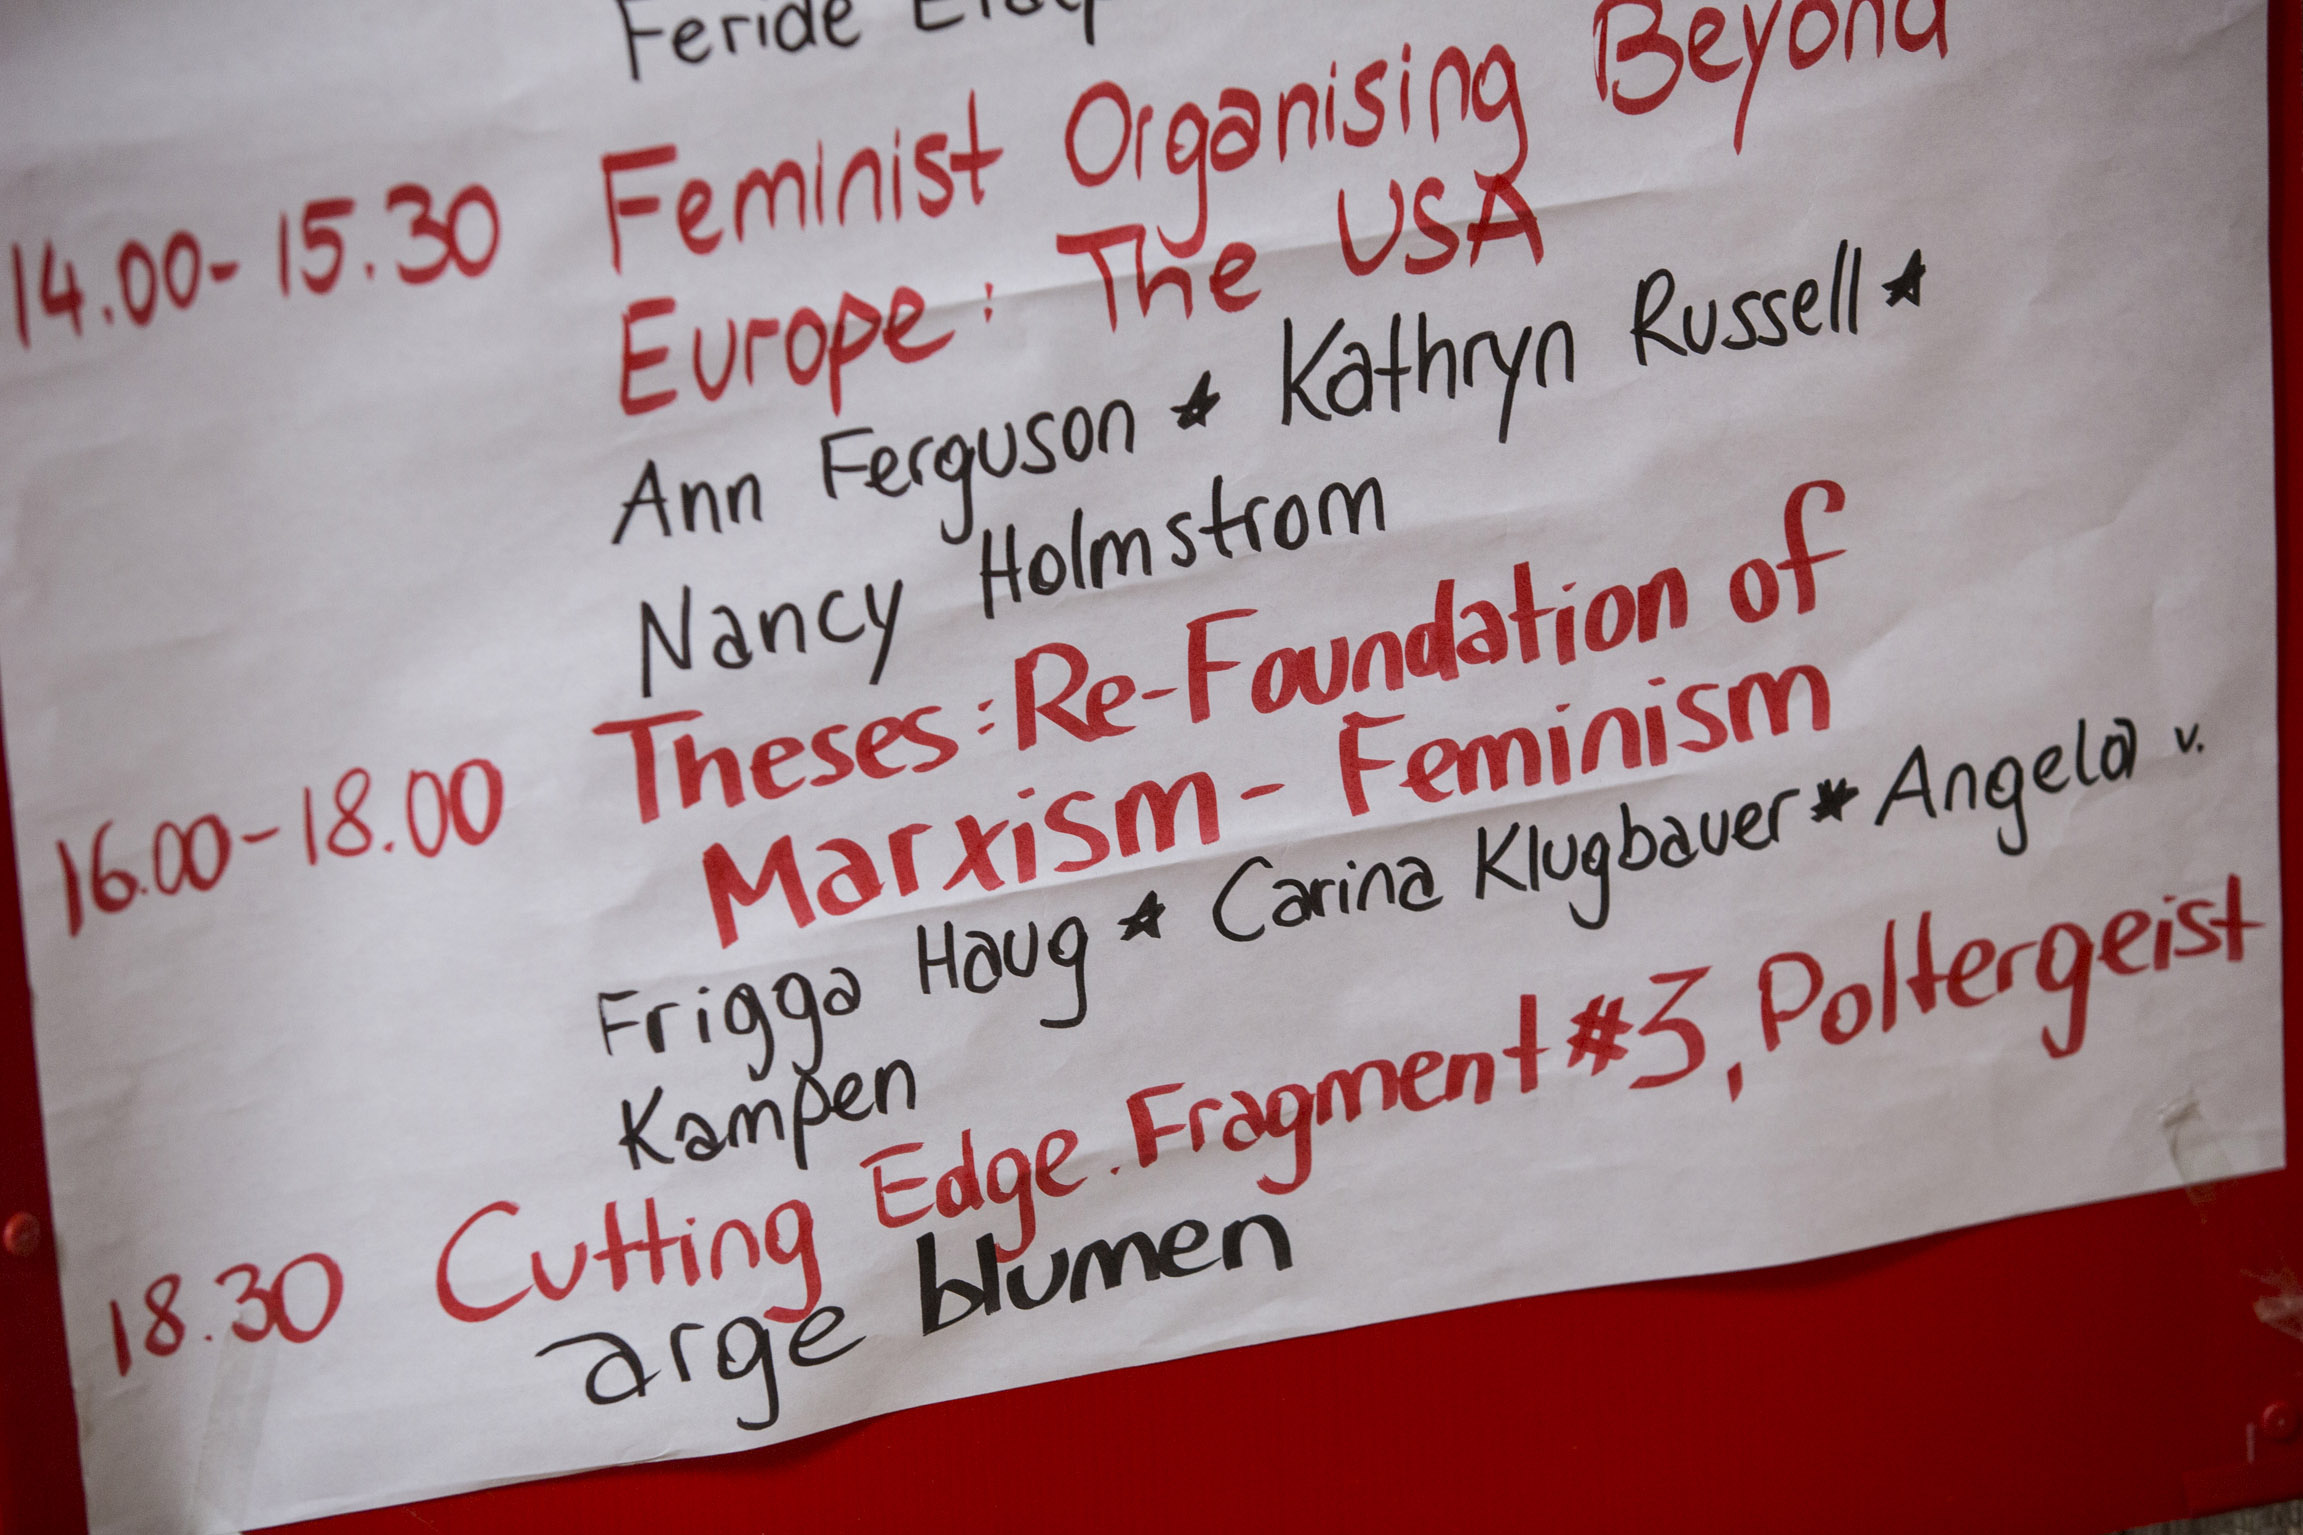 Feride
14.00-15.30 Feminist Organising Beyond
Europe: The USA
Ann Ferguson ★ Kathryn Russell ★
Nancy Holmstrom
16.00-18.00 Theses: Re-Foundation of
Marxism-Feminism
Frigga Haug ★ Carina Klugbauer ★ Angela v.
Kampen
18.30 Cutting Edge. Fragment #3, Poltergeist
arge blumen